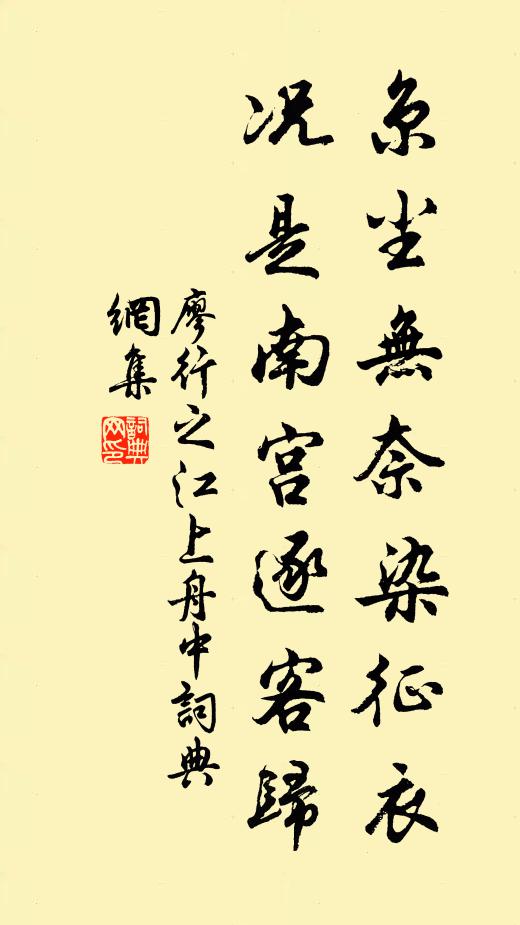 京尘無奈染征衣
况是南宫逐客歸
廖行之江上舟中詞典
網集
詞典
网印